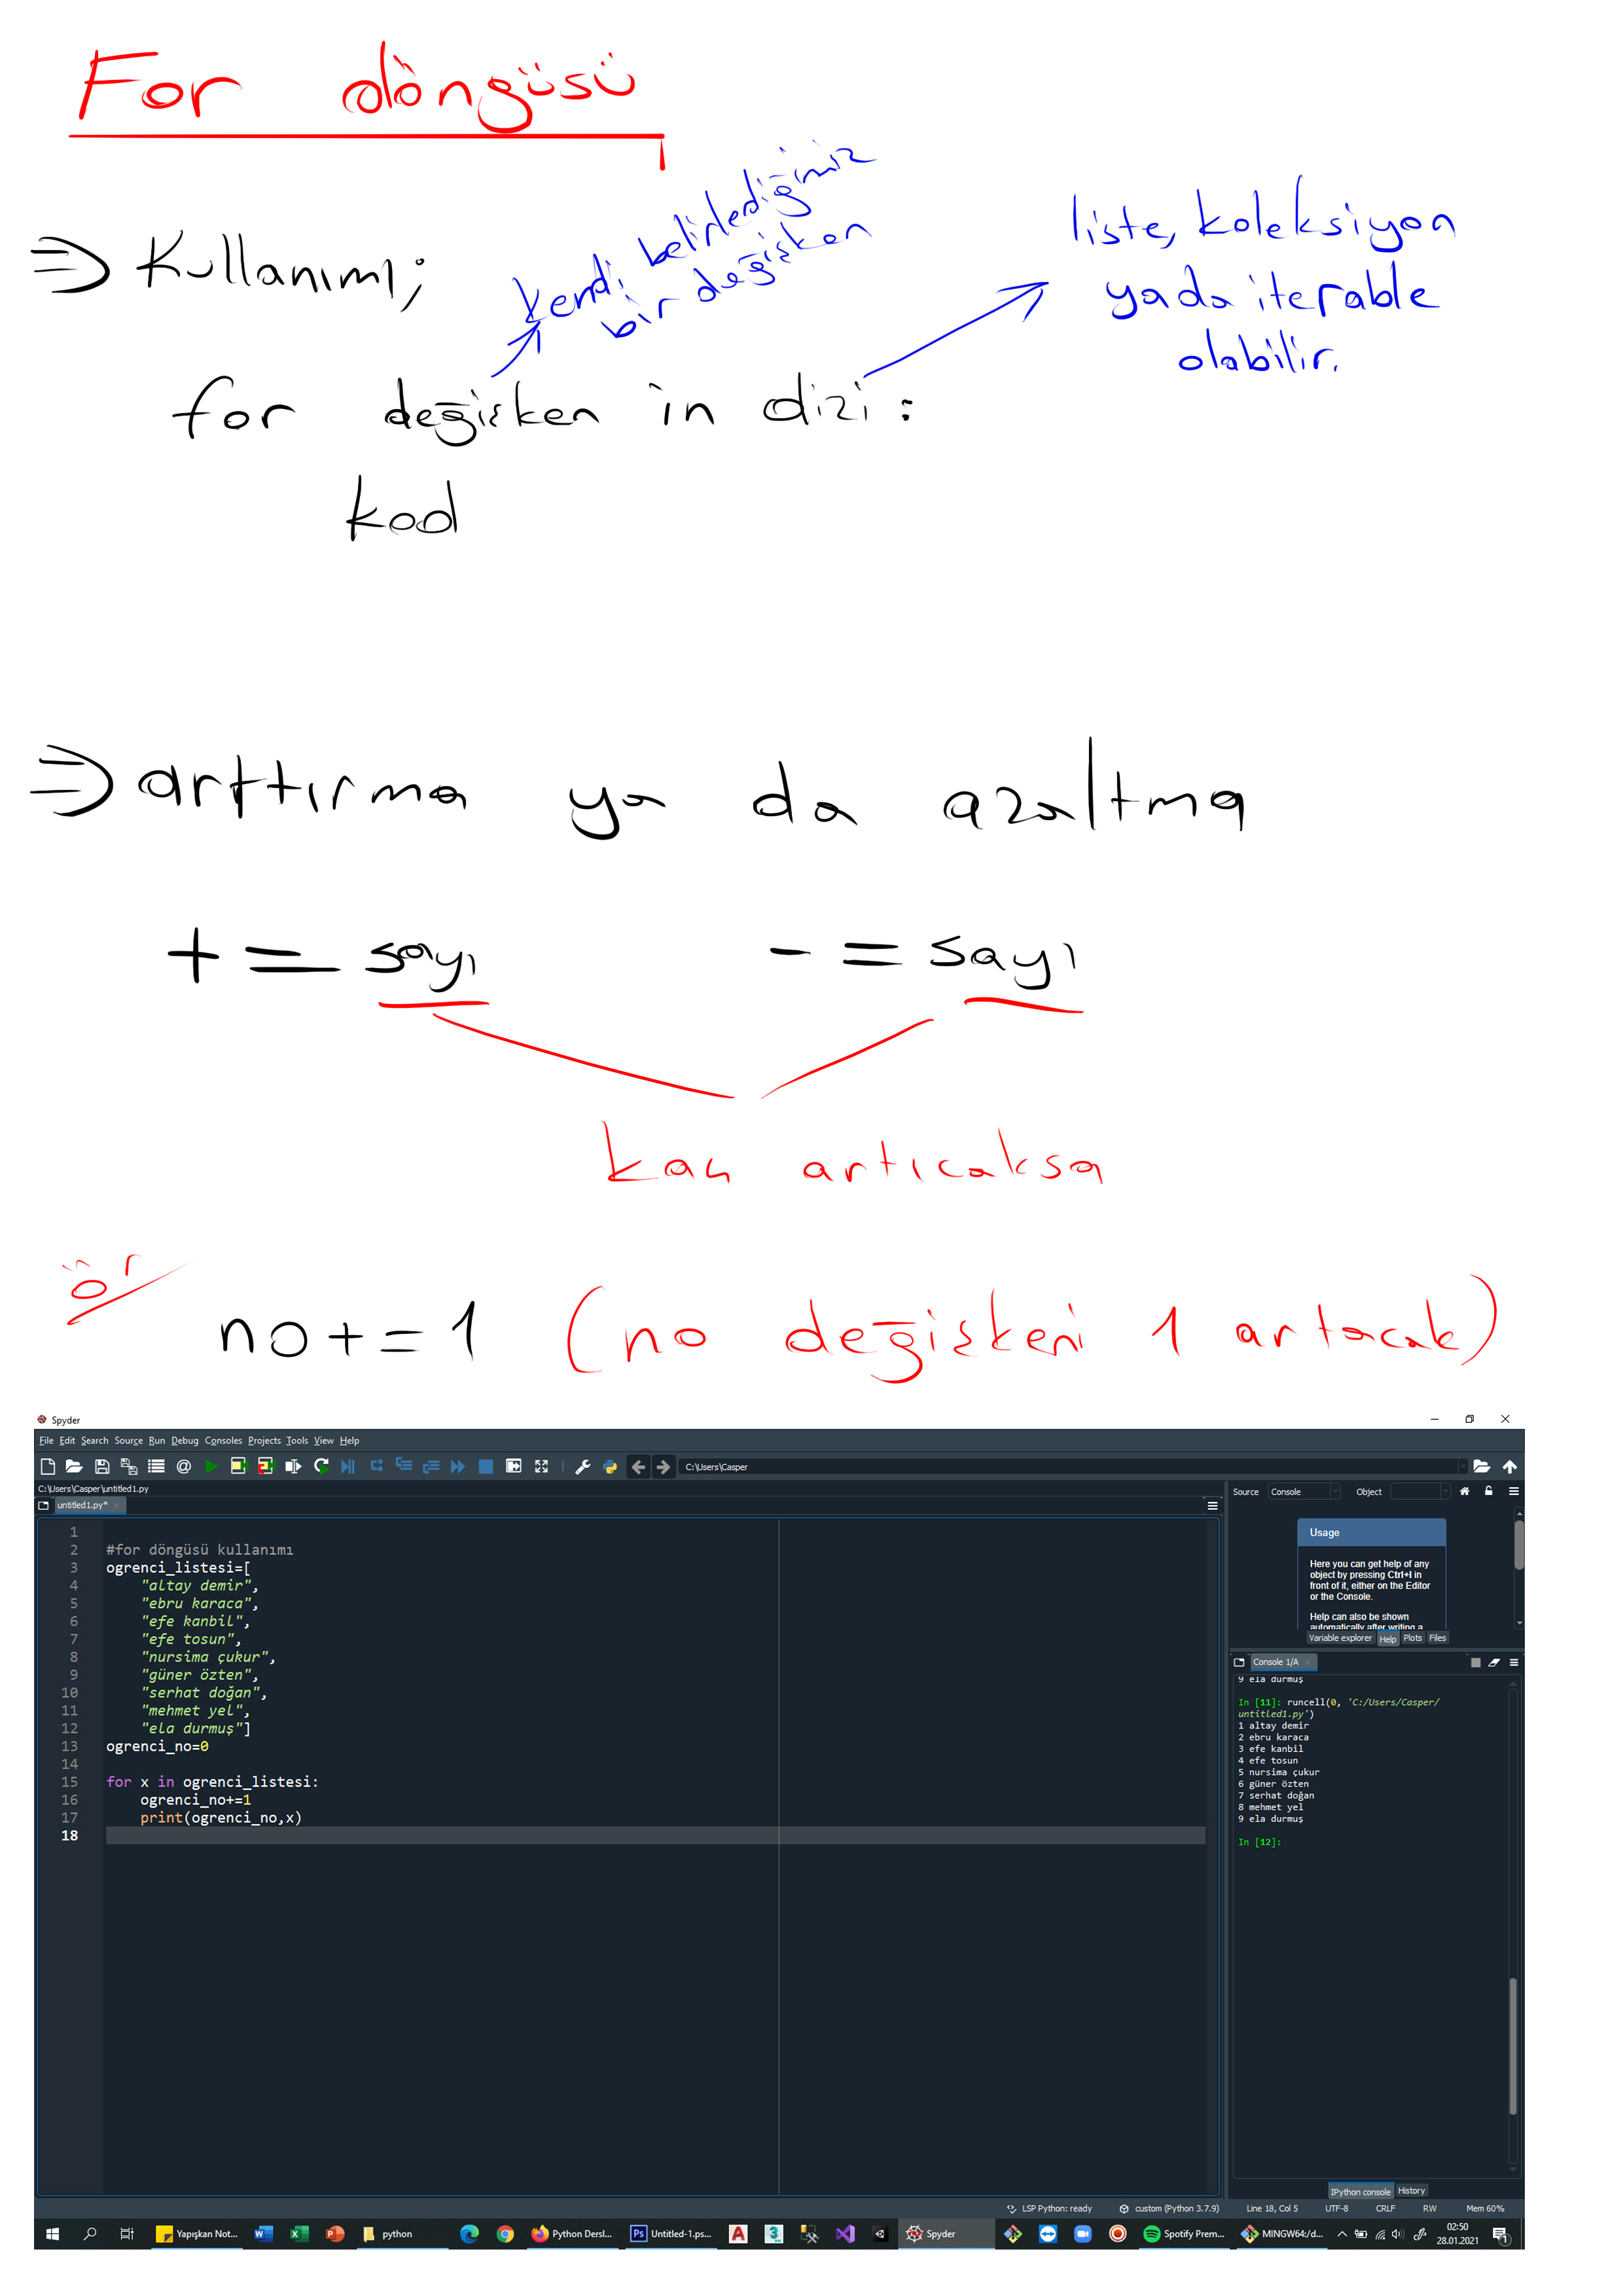 For döngüsü
⇒ Kullanımı;
kendi belirlediğimiz
bir değişken
liste, koleksiyon
yada iterable
olabilir.
for değişken in dizi:
kod
⇒ arttırma ya da azaltma
+= sayı    -= sayı
kaç artıcaksa
ör
no+=1 (no değişkeni 1 artacak)
Spyder
File Edit Search Source Run Debug Consoles Projects Tools View Help
C:\Users\Casper
C:\Users\Casper\untitled1.py
untitled1.py*
1
2 #for döngüsü kullanımı
3 ogrenci_listesi=[
4 "altay demir",
5 "ebru karaca",
6 "efe kanbil",
7 "efe tosun",
8 "nursima çukur",
9 "güner özten",
10 "serhat doğan",
11 "mehmet yel",
12 "ela durmuş"]
13 ogrenci_no=0
14
15 for x in ogrenci_listesi:
16 ogrenci_no+=1
17 print(ogrenci_no,x)
18
Source Console Object
Usage
Here you can get help of any
object by pressing Ctrl+I in
front of it, either on the Editor
or the Console.
Help can also be shown
automatically after writing a
Variable explorer Help Plots Files
Console 1/A
9 ela durmuş
In [11]: runcell(0, 'C:/Users/Casper/
untitled1.py')
1 altay demir
2 ebru karaca
3 efe kanbil
4 efe tosun
5 nursima çukur
6 güner özten
7 serhat doğan
8 mehmet yel
9 ela durmuş
In [12]:
IPython console History
LSP Python: ready custom (Python 3.7.9) Line 18, Col 5 UTF-8 CRLF RW Mem 60%
Yapışkan Not... python Python Dersl... Untitled-1.ps... Spyder Spotify Prem... MINGW64:/d...
02:50
28.01.2021